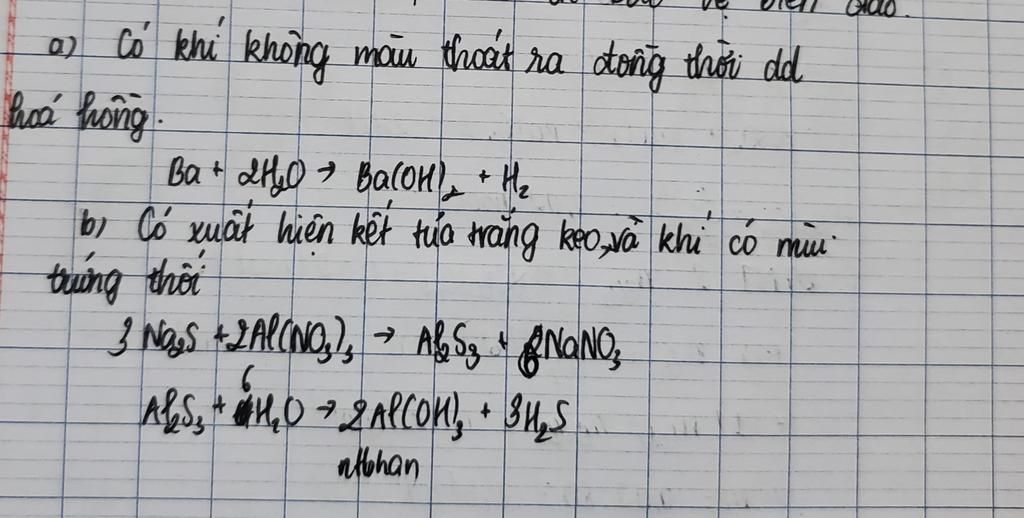 vệ biên giáo.
a) Có khí không màu thoát ra đồng thời dd
hoá hồng.
Ba + 2H₂O → Ba(OH)₂ + H₂
b) Có xuất hiện kết tủa trắng keo, và khí có mùi
trứng thối
3Na₂S + 2Al(NO₃)₃ → Al₂S₃ + 6NaNO₃
Al₂S₃ + 6H₂O → 2Al(OH)₃ + 3H₂S